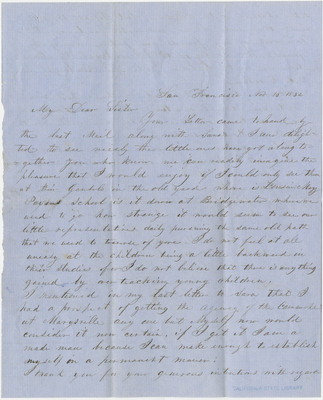 San Francisco
My Dear Sister
Your letter came to hand by
the last Mail along with Sara's & I am deligh
ted to see nicely the little ones have got along to
gether you who know me can readily imagine the
pleasure that I would enjoy if I could only see them
at their Gambols in the old yard where is
School is it down at Bridgewater where we
used to go how strange it would seem to see our
little representatives daily pursuing the same old path
that we used to traverse of yore. I do not feel at all
uneasy at the children being a little backward in
their Studies for I do not believe that there is anything
gained by children.
I mentioned in my last letter to Sara that I
had a prospect of getting the Agency of the
at Marysville any one but myself now would
consider it certain, if I get it I am a
made man because I can make enough to establish
myself on a permanent manner.
I thank you for your intentions with regard